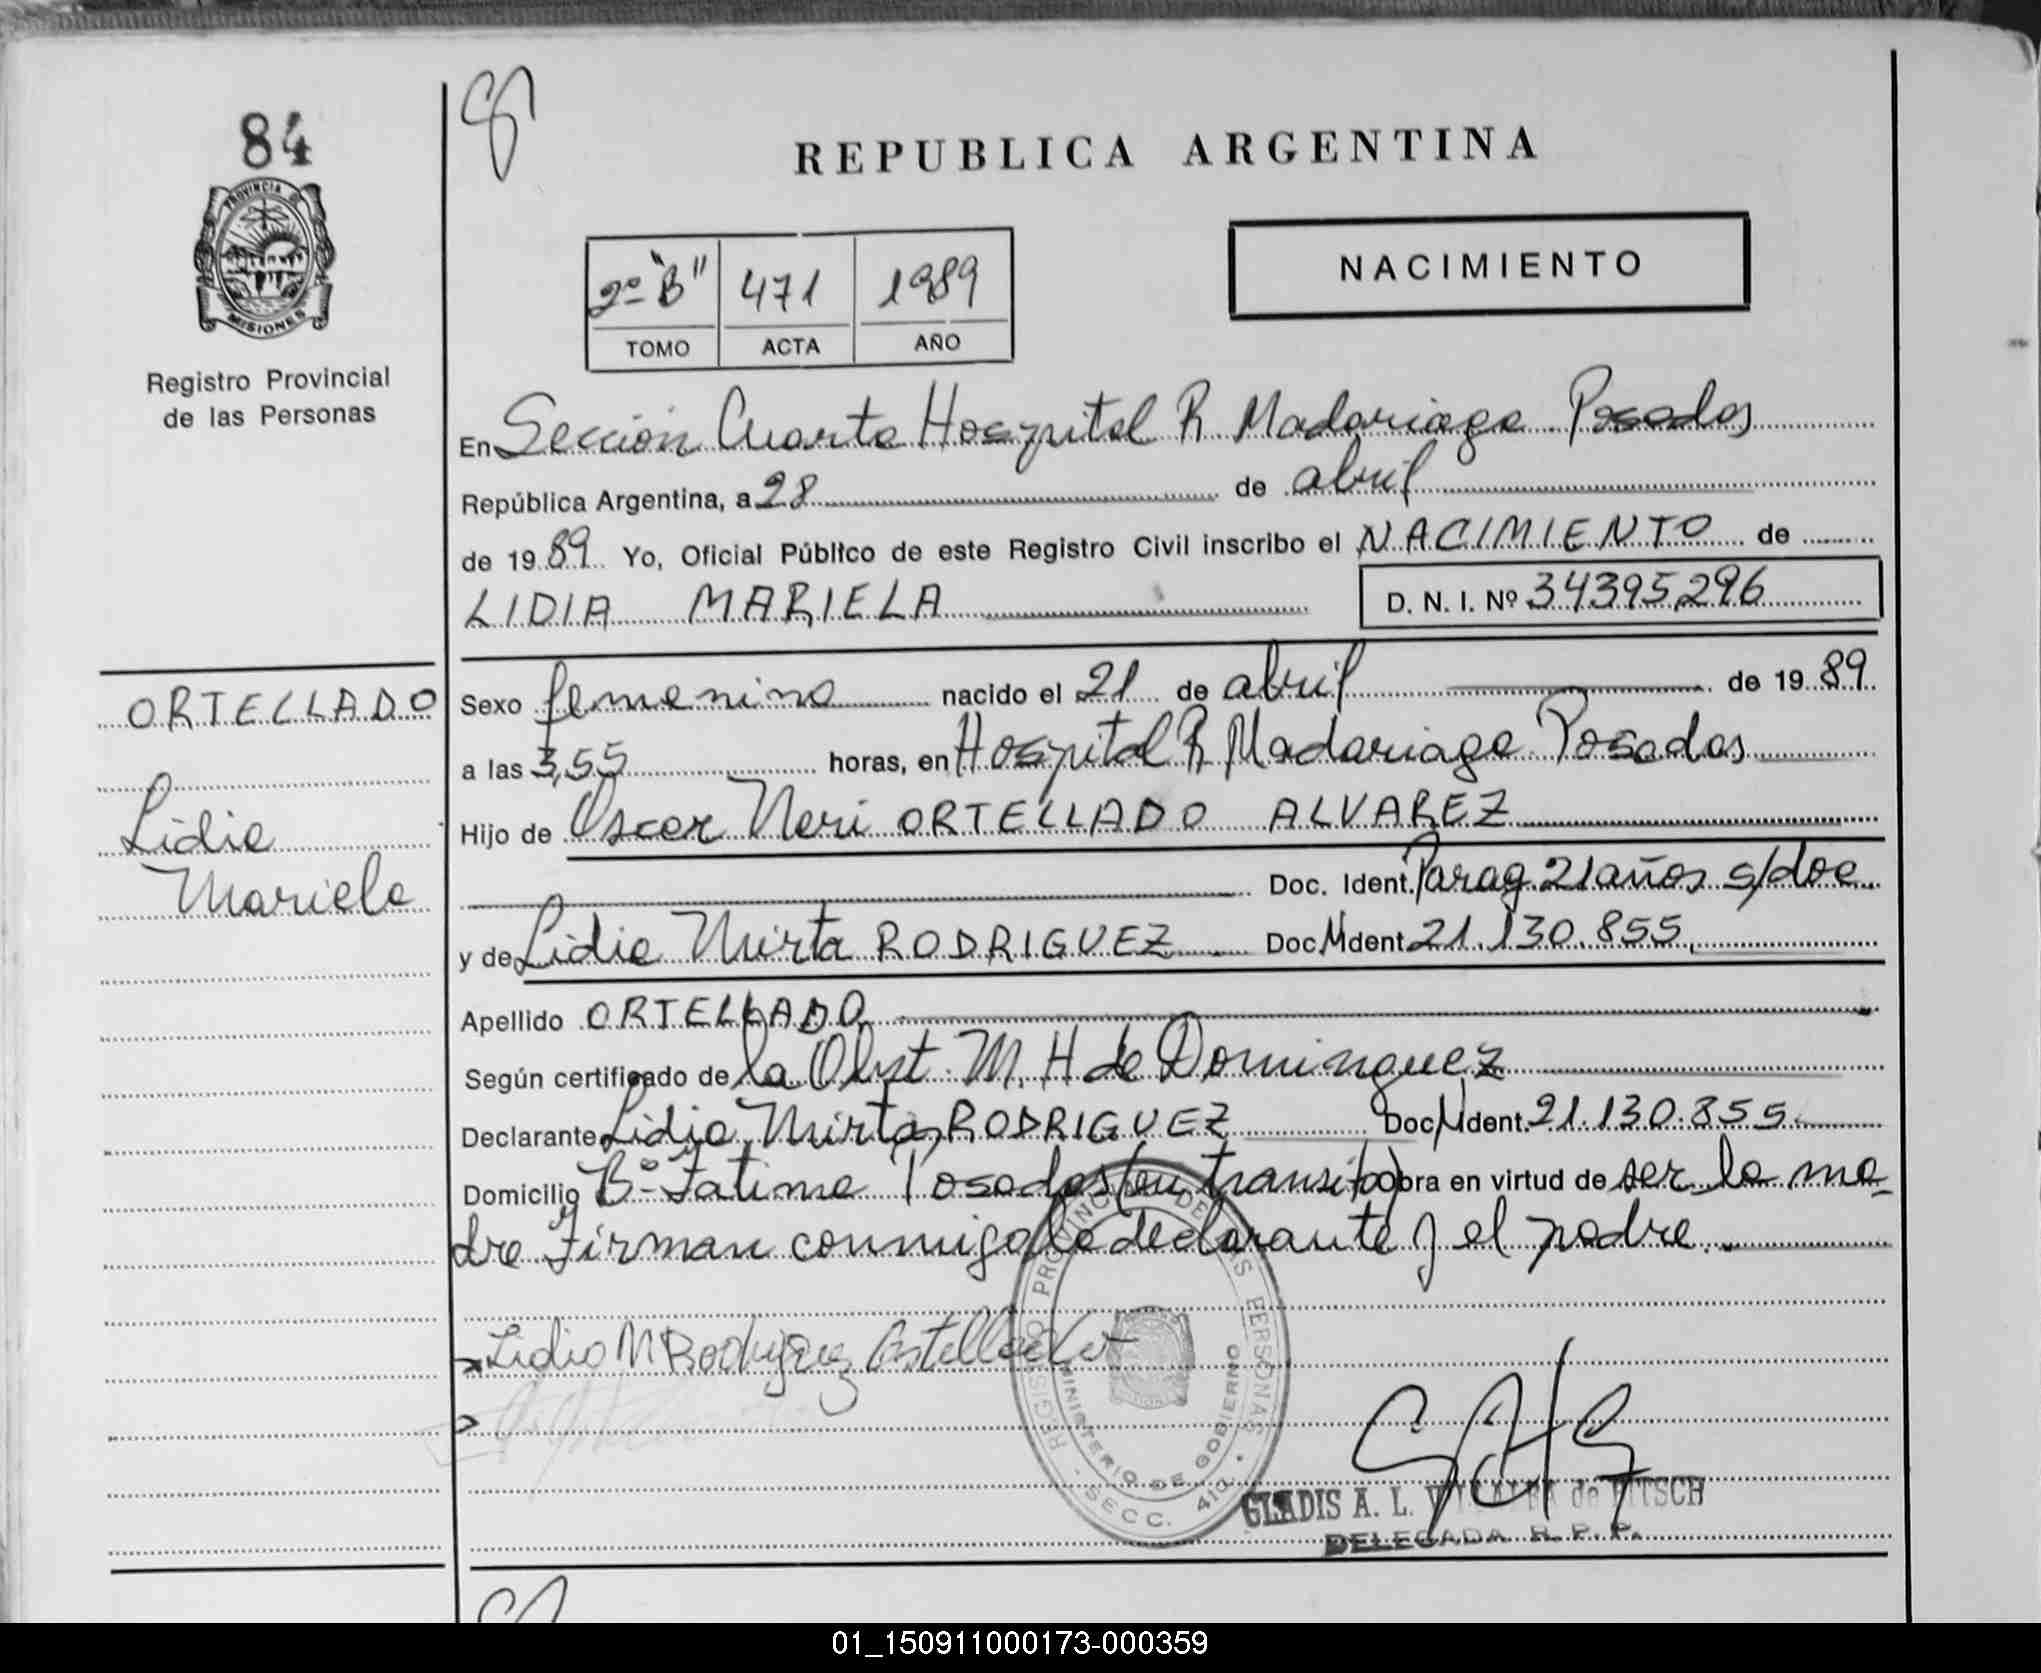 84
PROVINCIA DE
MISIONES
Registro Provincial
de las Personas
REPUBLICA ARGENTINA
2º "B" 471 1989
TOMO ACTA AÑO
NACIMIENTO
En Sección Cuarta Hospital R Madariaga Posadas
República Argentina, a 28 de abril
de 1989 Yo, Oficial Público de este Registro Civil inscribo el NACIMIENTO de
LIDIA MARIELA D. N. I. Nº 34395,296
ORTELLADO
Lidia
Mariela
Sexo femenino nacido el 21 de abril de 1989
a las 3,55 horas, en Hospital R Madariaga Posadas
Hijo de Oscar Neri ORTELLADO ALVAREZ
Doc. Ident. Parag 21 años s/doc
y de Lidia Mirta RODRIGUEZ Doc. Ident. 21.130.855
Apellido ORTELLADO
Según certificado de la Obst. M. H de Dominguez
Declarante Lidia Mirta RODRIGUEZ Doc. Ident. 21.130.855
Domicilio Bº Fatima Posadas (en transito) obra en virtud de ser la ma-
dre Firman conmigo la declarante y el padre.
Lidia M Rodriguez
REGISTRO PROVINCIAL DE LAS PERSONAS
MINISTERIO DE GOBIERNO
SECC. 4
GLADIS A. L. de
DELEGADA R. P. P.
01_150911000173-000359